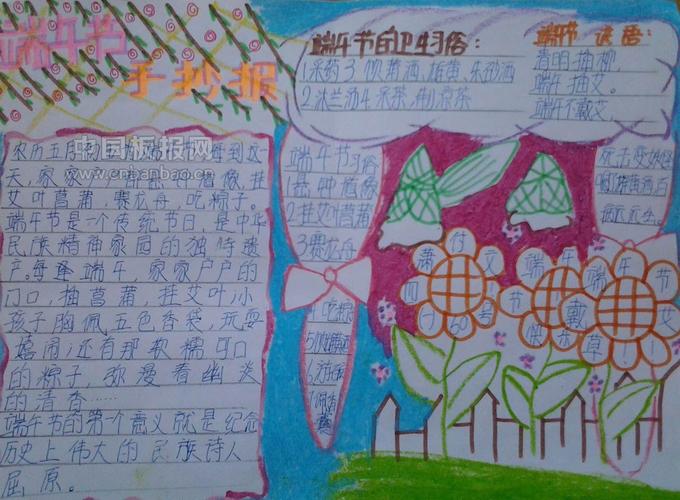 端午节
手抄报
中国板报网
农历五月初五是端午节，每到这
天，家家
艾叶菖蒲，赛龙舟，吃粽子。
端午节是一个传统节日，是中华
民族精神家园的独特遗
产。每逢端午，家家户户的
门口，插菖蒲，挂艾叶，小
孩子胸佩五色香袋，玩耍
嬉闹，还有那软糯可口
的粽子，弥漫着幽炎
的清香……
端午节的第个意义就是纪念
历史上伟大的民族诗人
屈原。
端午节的卫生习俗：
1.采药3.饮菖酒、雄黄、朱砂酒
2.沐兰汤4.采茶、制凉茶
端午节谚语：
清明插柳，
端午插艾。
端午不戴艾，
死去变妖怪
喝了雄黄酒，百
病远远丢。
端午节习俗
1.悬钟馗像
2.挂艾叶菖蒲
3.赛龙舟
4.吃粽
端午节
快乐